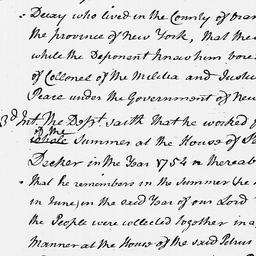 : Decay who lived in the County of Oran
the province of New York, that the
while the Deponent Knew him bore
of Collonel of the Militia and Justice
Peace under the Government of New
3d Int. The Dept. saith that he worked
of the
Summer at the House of Pe
Decker in the Year 1754 n thereab
that he remembers in the Summer (he
in June) in the said Year of our Lord
the People were collected together in a
Manner at the House of the said Petrus